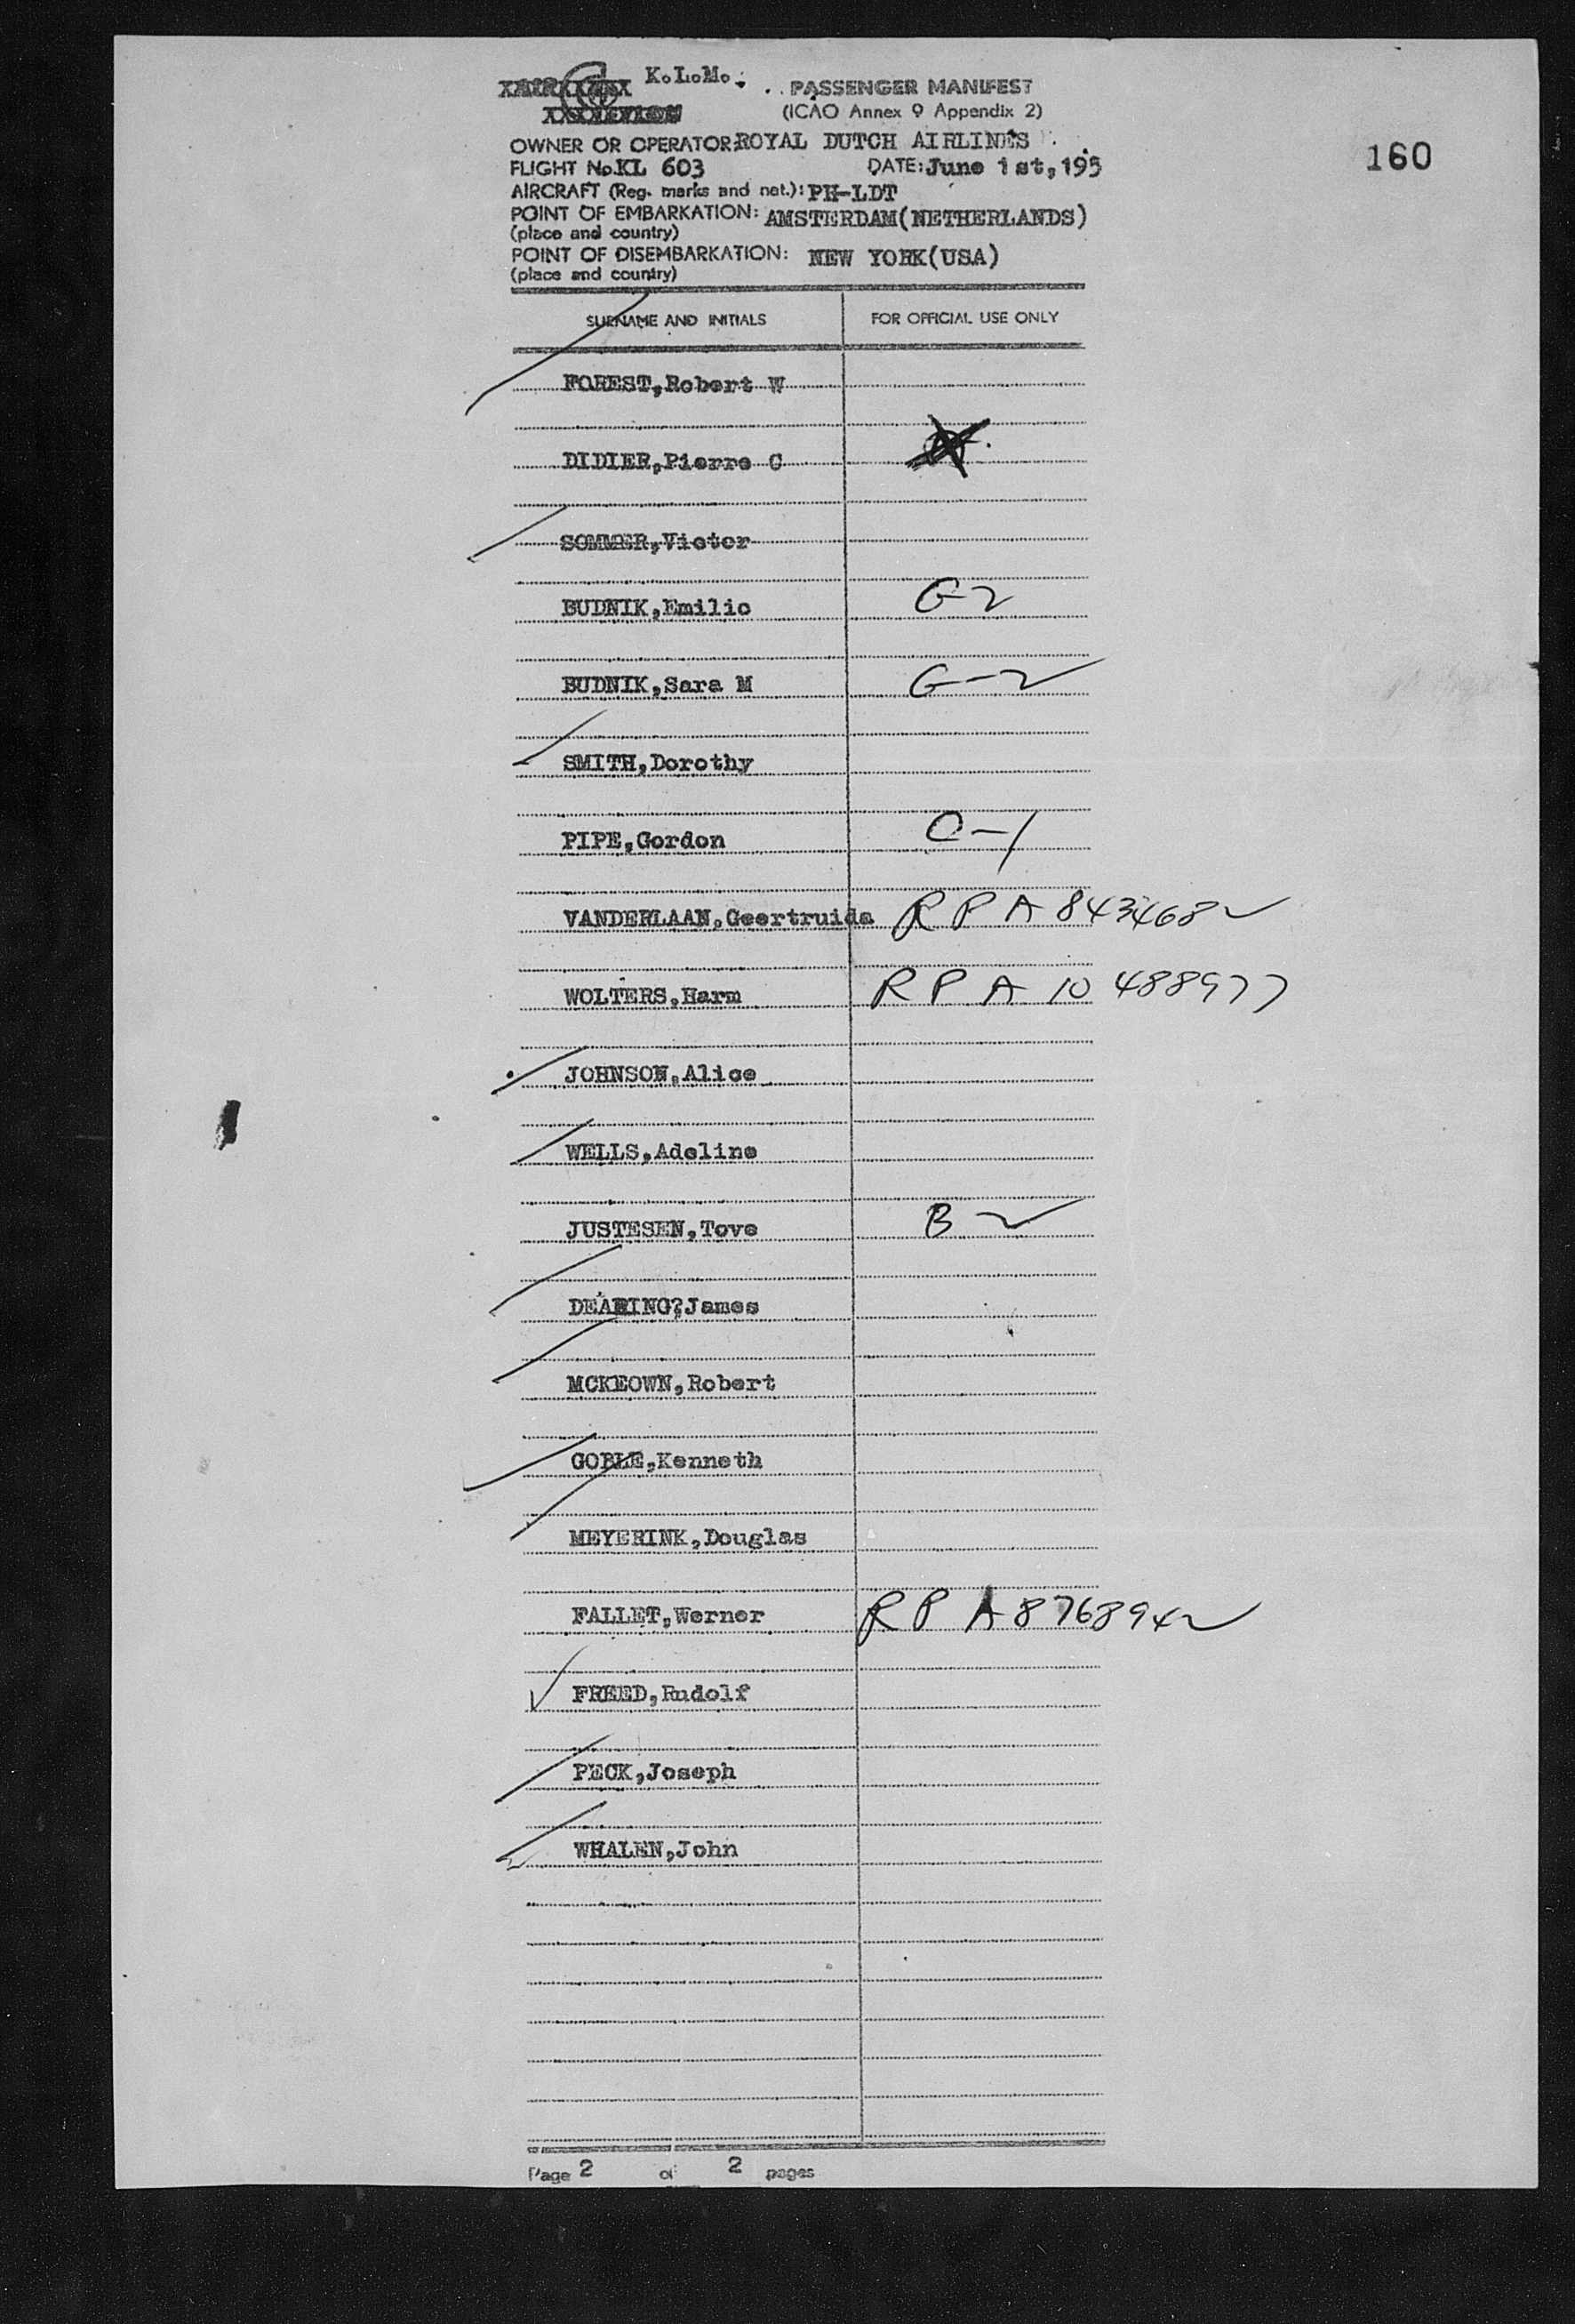 K.L.M.
PASSENGER MANIFEST
(ICAO Annex 9 Appendix 2)
OWNER OR OPERATOR: ROYAL DUTCH AIRLINES
160
FLIGHT No. KL 603 DATE: June 1st, 195
AIRCRAFT (Reg. marks and nat.): PH-LDT
POINT OF EMBARKATION: AMSTERDAM(NETHERLANDS)
(place and country)
POINT OF DISEMBARKATION: NEW YORK(USA)
(place and country)
SURNAME AND INITIALS FOR OFFICIAL USE ONLY
FOREST,Robert W
DIDIER,Pierre C
SOMMER,Victor
BUDNIK,Emilio G-2
BUDNIK,Sara M G-2
SMITH,Dorothy
PIPE,Gordon C-1
VANDERLAAN,Geertruida R P A 843468
WOLTERS,Harm R P A 10 488977
JOHNSON,Alice
WELLS,Adeline
JUSTESEN,Tove B
DEARING?James
MCKEOWN,Robert
GOBLE,Kenneth
MEYERINK,Douglas
FALLET,Werner R P A 876894
FREED,Rudolf
PECK,Joseph
WHALEN,John
Page 2 of 2 pages